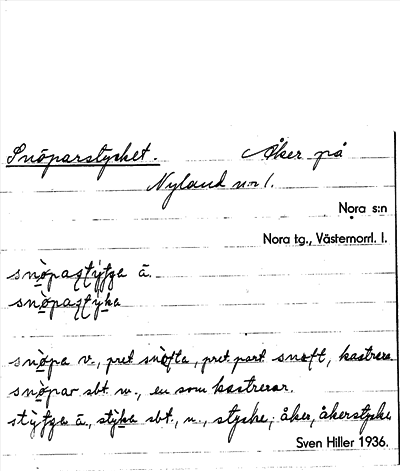 Snöparstycket. Åker på
Nyland n:r 1.
Nora s:n
Nora tg., Västernorrl. l.
snöpa v., pret snöfta, pret. part snöft, kastrera.
snöpar sbt. m., en som kastrerar.
ä., sbt., n., stycke; åker, åkerstycke
Sven Hiller 1936.